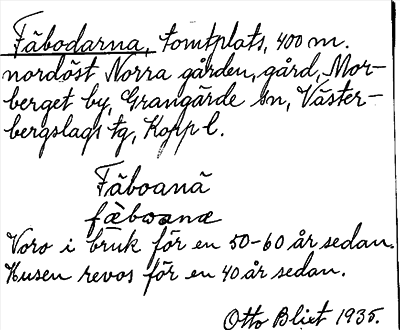 Fäbodarna, tomtplats, 400 m.
nordöst Norra gården, gård, Mor-
berget by, Grangärde sn, Väster-
bergslags tg, Kopp l.
Fäboanä
fäboanæ
Voro i bruk för en 50-60 år sedan.
Husen revos för en 40 år sedan.
Otto Blixt 1935.